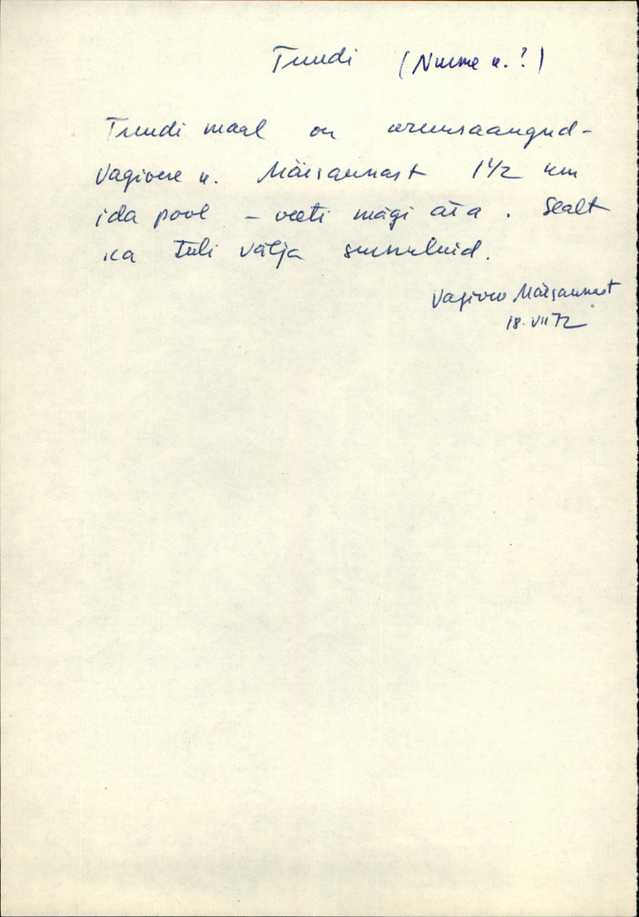 Truudi (Nurme k.?)
Truudi maal on
Vagivere k. Mäesannast 1 1/2 km
ida pool – veeti mägi ära. Sealt
ka tuli välja surnuluid.
Vagivere Mäesannast
18. VII 72